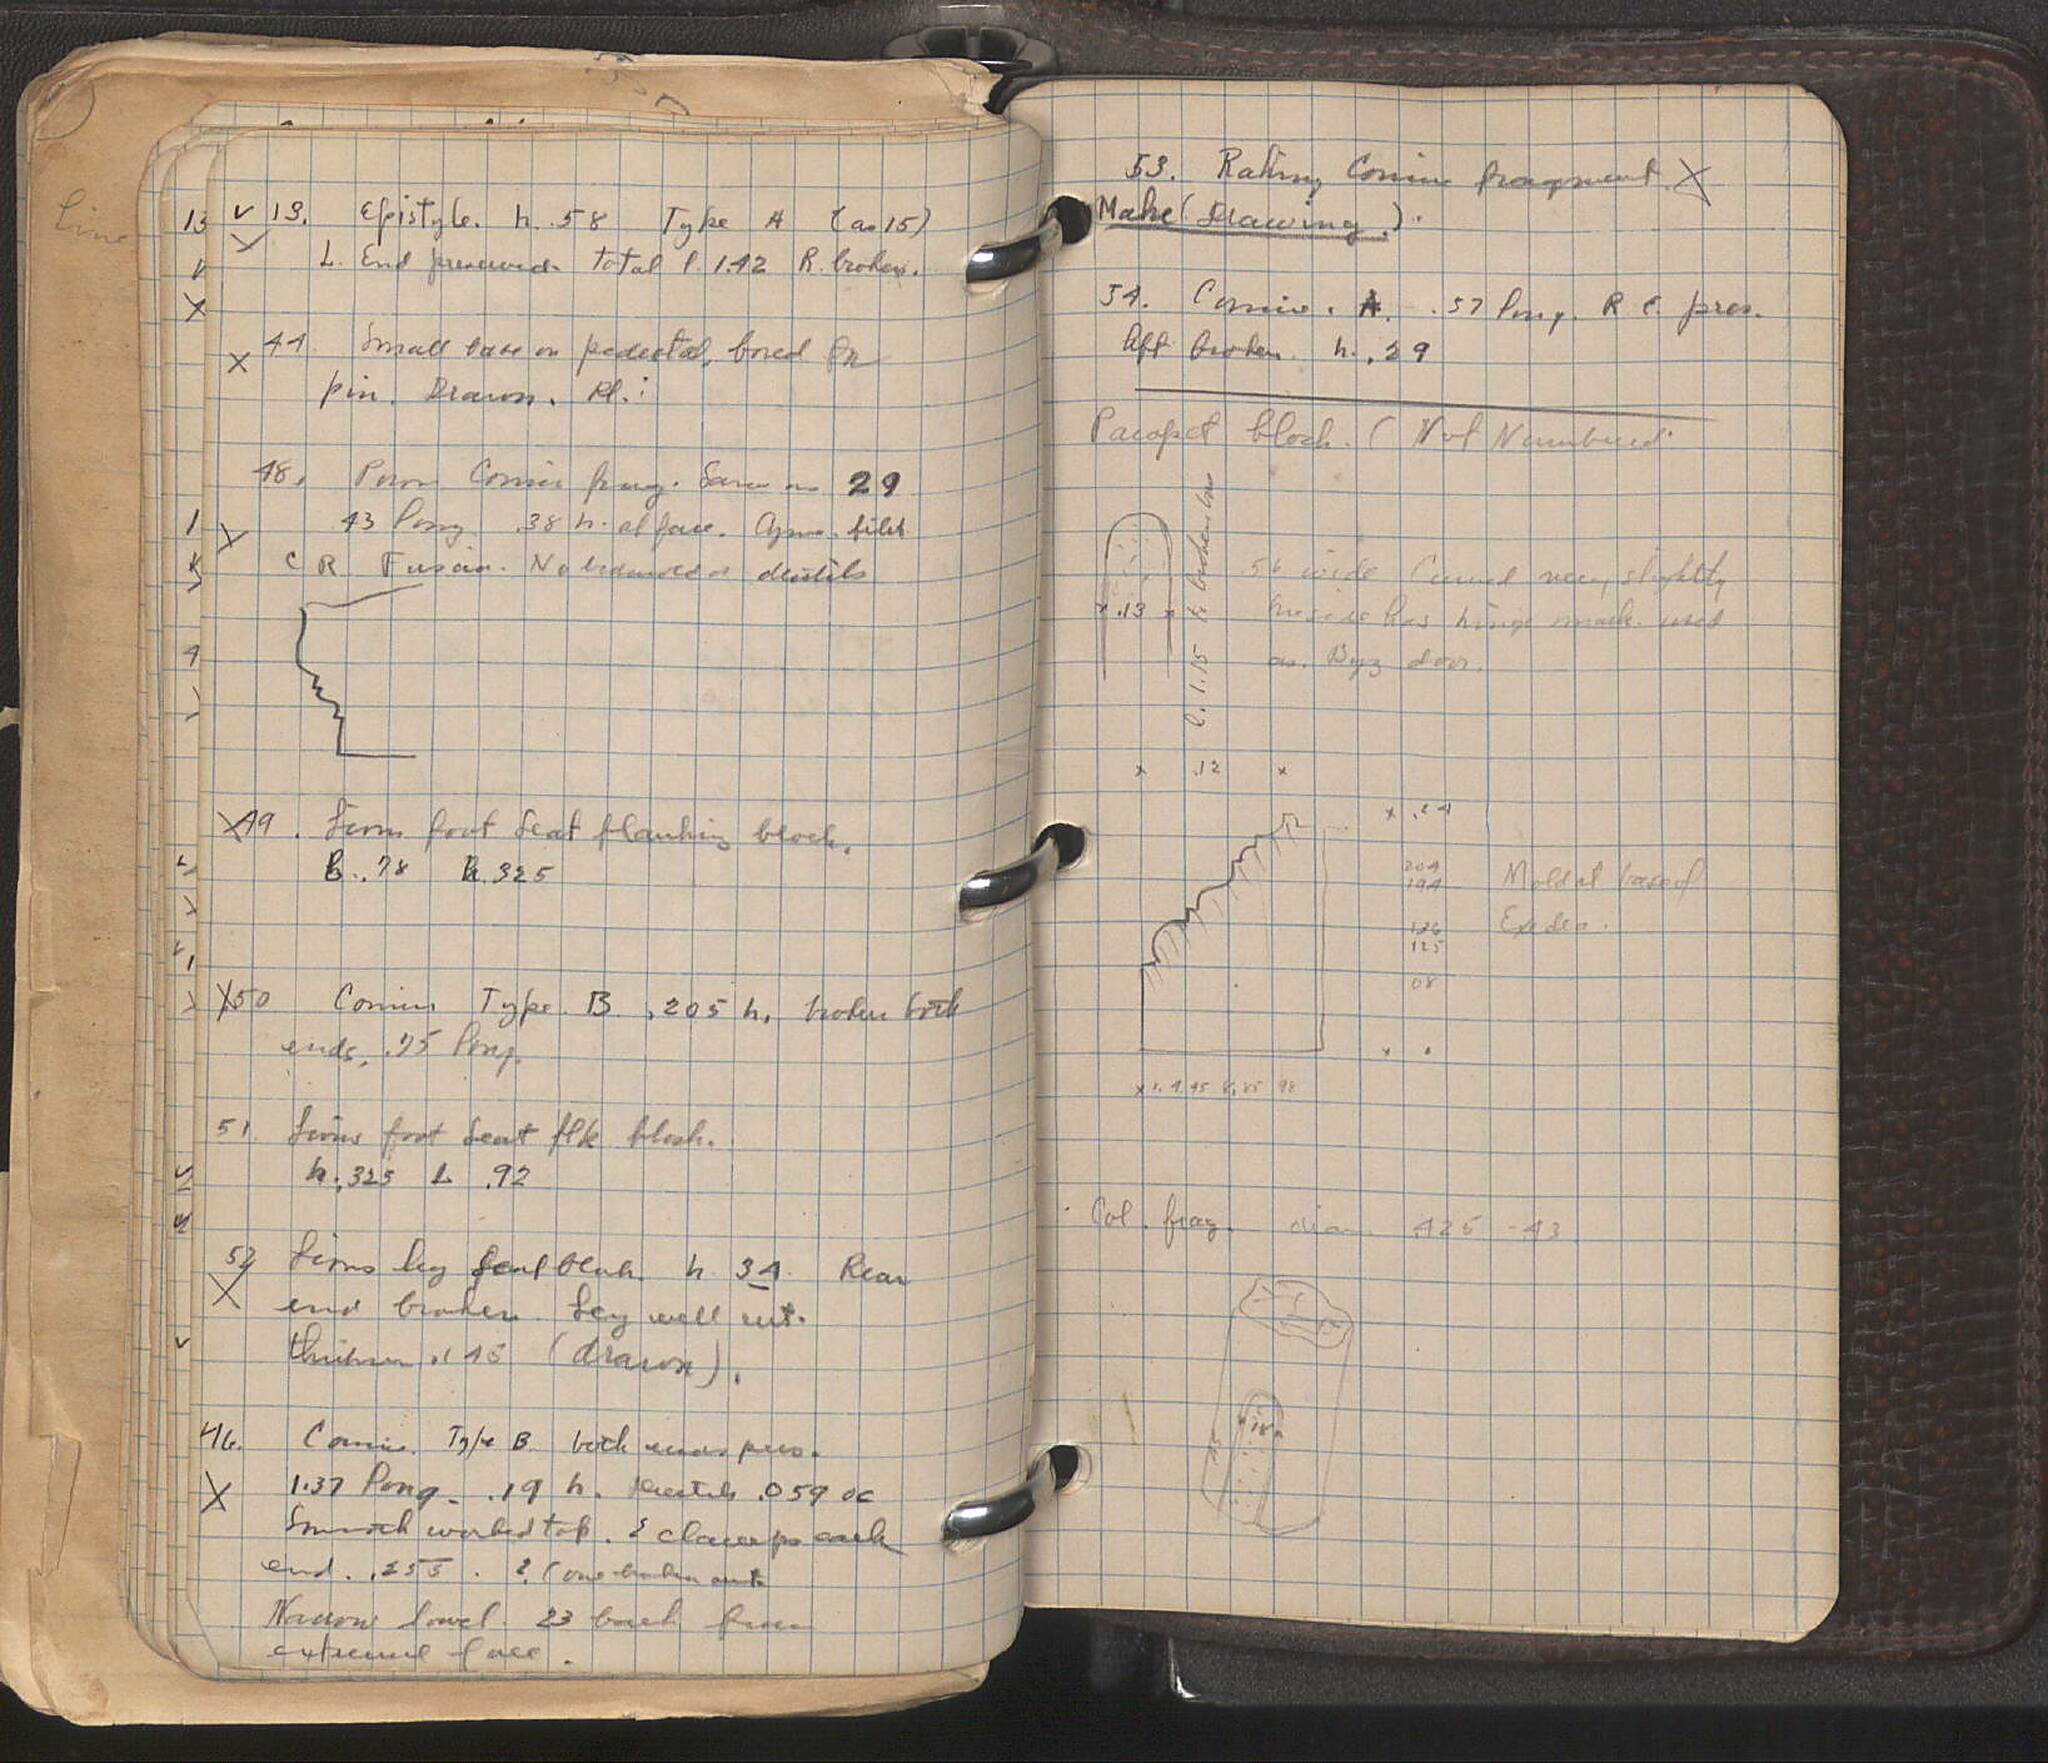 Line
13. Epistyle. h. .58 Type A (as 15)
L. End preserved. total l. 1.42 R. broken.
44. Small base on pedestal, bored for
pin. Drawn. Pl.
48. Poros Cornice frag. Same as 29
43 long .38 h. at face. Cyma. fillet
C R No dentils
X 49. Lions foot Seat flanking block.
L. .78 h. 325
X 50 Cornice Type B. .205 h. broken both
ends, .75 long.
51. Lions foot Seat flk block.
h. .325 L .92
52 Lions leg Seat block. h. 34. Rear
X end broken. Leg well cut.
thickness .145 (drawn).
46. Cornice. Type B. both ends pres.
X 1.37 long. .19 h. Dentils .059 oc
Smooth worked top. 2 clamps each
end. .255. 2. (one broken out
Narrow dowel. 23 back from
extreme face.
53. Raking Cornice fragment. X
Make (Drawing.).
54. Cornice. A. .57 long. R. E. pres.
left broken. h. .29
Parapet block. (Not Numbered.
.13
l. 1.15 to broken
56 wide Curved very slightly
has hinge mark. used
as. Byz door.
x .12 x
x .24
204
194
Molded base of
Exedra.
126
125
08
Col. frag. diam. .425 - .43